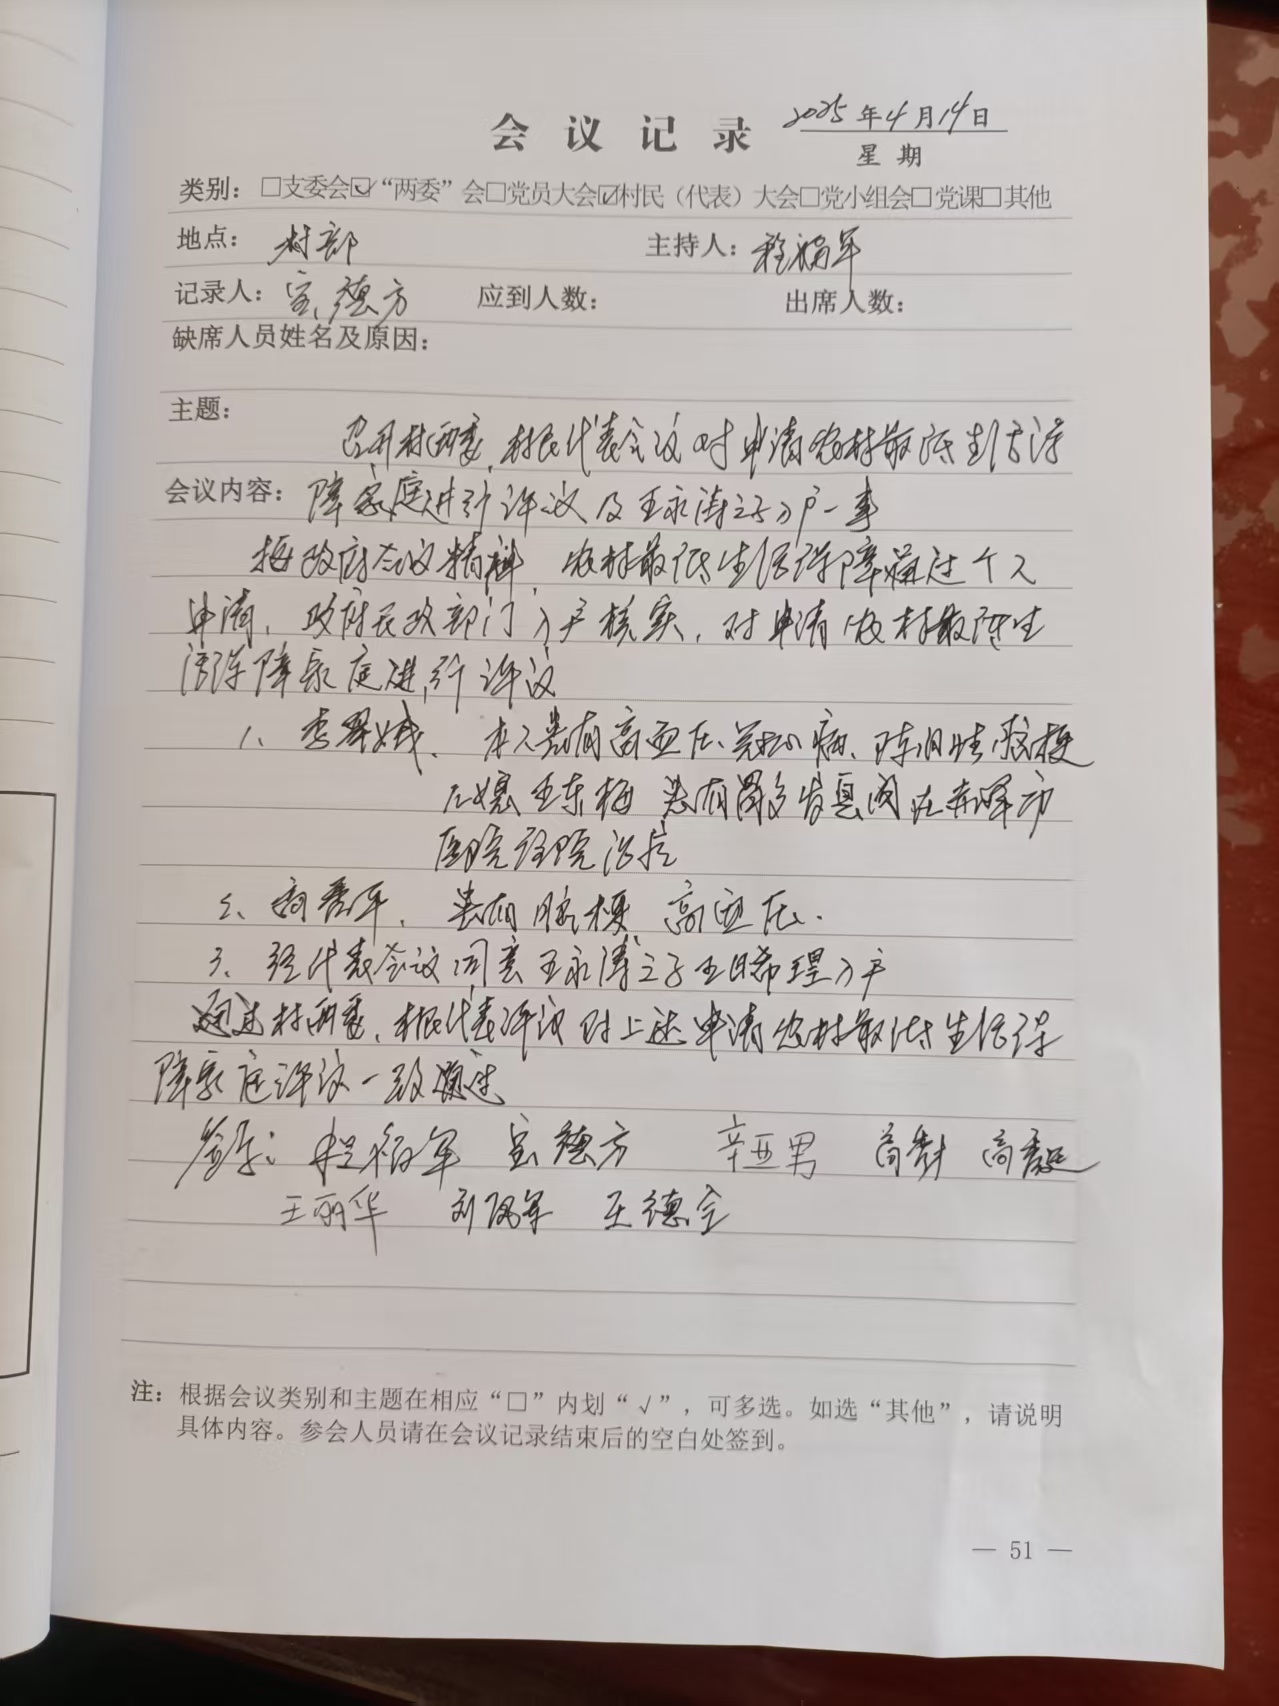 会议记录 2025年4月14日
星期
类别：□支委会☑“两委”会□党员大会☑村民（代表）大会□党小组会□党课□其他
地点：村部 主持人：程福军
记录人：宫德方 应到人数： 出席人数：
缺席人员姓名及原因：
主题：召开村两委、村民代表会议对申请农村最低生活保
会议内容：障家庭进行评议及王永涛之子入户一事
按政府会议精神，农村最低生活保障通过个人
申请，政府民政部门入户核实，对申请农村最低生
活保障家庭进行评议
1、李翠娥、本人患有高血压、冠心病、陈旧性脑梗
儿媳王东梅 患有胃多发息肉在赤峰市
医院住院治疗
2、 患有脑梗、高血压.
3、经代表会议同意王永涛之子王晞理入户
通过村两委、村民代表评议对上述申请农村最低生活保
障家庭评议一致通过
签字：程福军 宫德方 辛亚男
王丽华 刘凤军 王德全
注：根据会议类别和主题在相应“□”内划“√”，可多选。如选“其他”，请说明
具体内容。参会人员请在会议记录结束后的空白处签到。
— 51 —